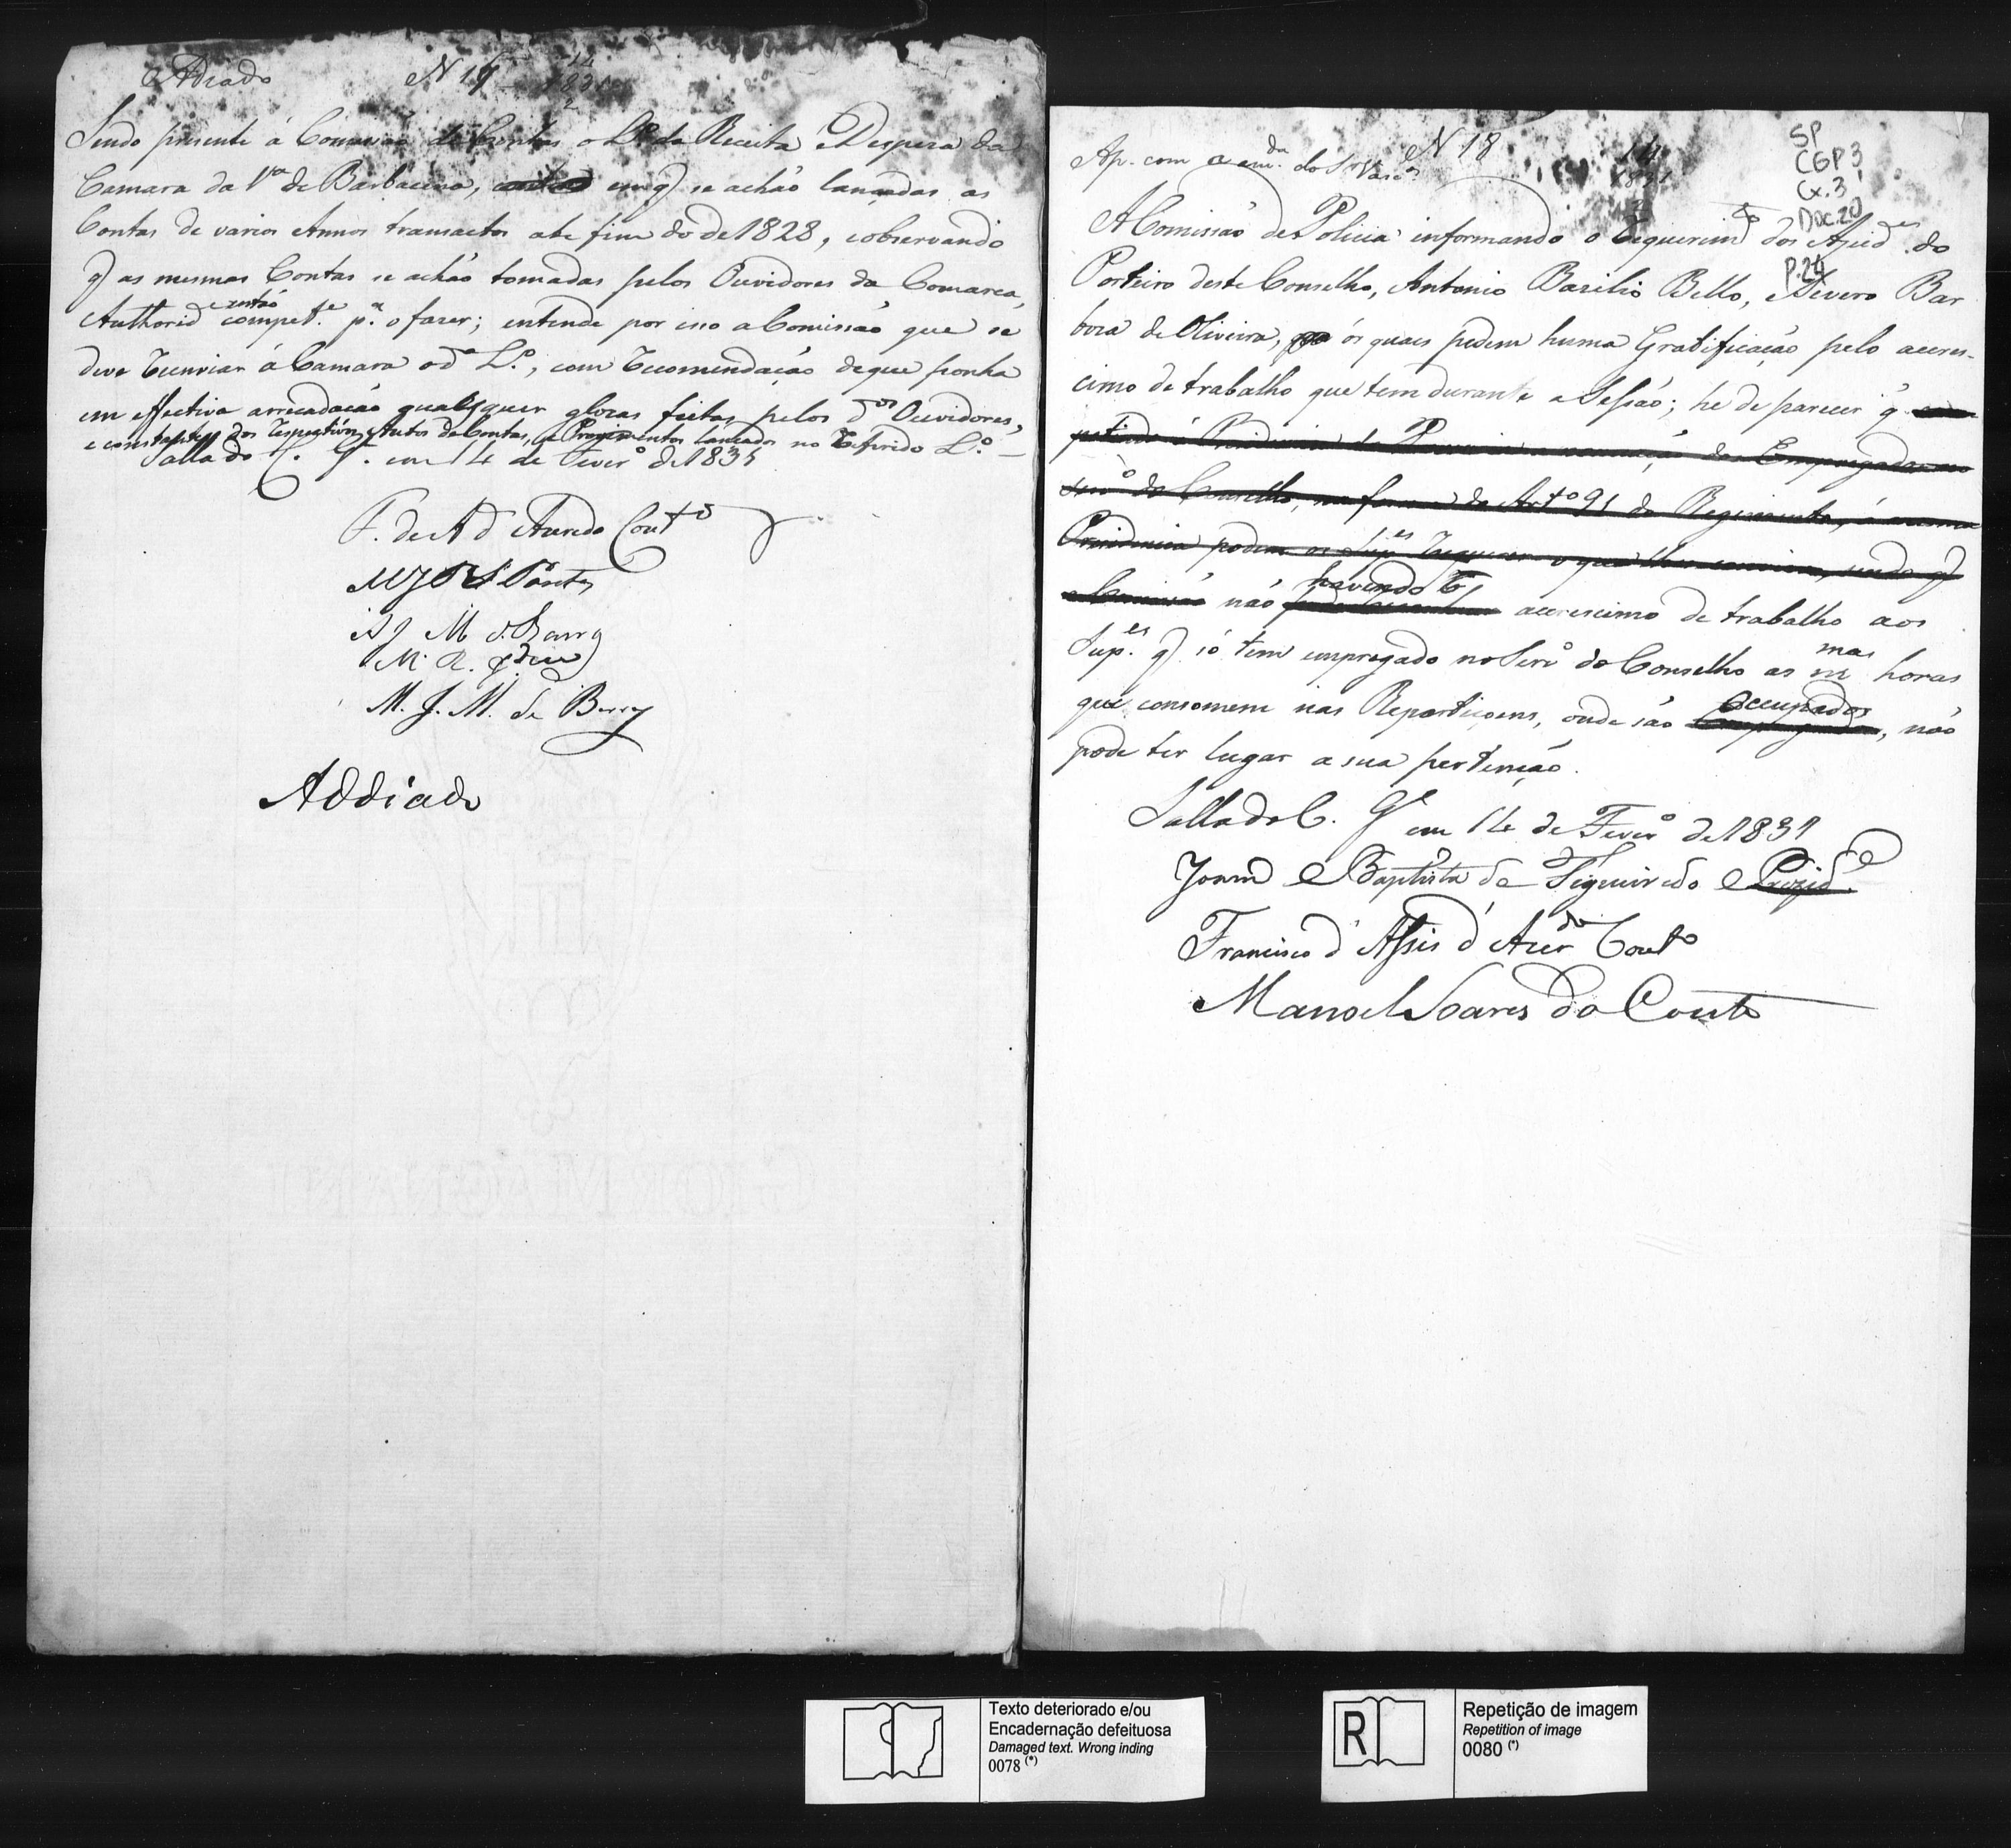 Adiado N 17 14
1831
2
Sendo presente á Comissão de Contas o L.º da Receita e Despeza da
Camara da V.ª de Barbacena, em q se achão lançadas as
Contas de varios Annos transactos ate fim do de 1828, e observando
q as mesmas Contas se achão tomadas pelos Ouvidores da Comarca,
então
Authorid.e compet.e p.ª o fazer; entende por isso a Comissão que se
deve reenviar á Camara o d.º L.º, com recomendação de que ponha
em effectiva arrecadação quaesquer glozas feitas pelos d.os Ouvidores,
e constantes dos respectivos Autos de Contas, e Provimentos lançados no referido L.º
Salla do C. G. em 14 de Fever.º de 1831
F. de A d'Azeredo Cout.º
M. J. M. de Barros
Addiado
N 18 14
1831
2
Ap. com a em.da do Sr Vasc.os
SP
CGP 3
Cx. 3
Doc. 20
P. 24
A Comissão de Policia informando o requerim.to dos Ajud.es do
Porteiro deste Conselho, Antonio Bazilio Bello, e Severo Bar
boza de Oliveira, os quaes pedem huma Gratificação pelo acres-
cimo de trabalho que tem durante a Sessão; he de parecer q
petindo á Prezidencia da Provincia a nomeação dos Empregados no
serv.º do Conselho, na forma do Art.º 91 do Regimento, á mesma
Prezidencia podem os Sup.es requerer o que lhes convier, sendo q
havendo
a Comissão não acrescimo de trabalho aos
Sup.es q só tem empregado no Serv.º do Conselho as mas horas
que consomem nas Repartiçoens, onde são occupados
Empregados, não
pode ter lugar a sua pertenção.
Salla do C. G. em 14 de Fever.º de 1831
Joam Baptista de Figueiredo Prezid.e
Francisco d'Assis d'Azer.do Cout.º
Manoel Soares do Couto
Texto deteriorado e/ou
Encadernação defeituosa
Damaged text. Wrong inding
0078 (*)
R
Repetição de imagem
Repetition of image
0080 (*)